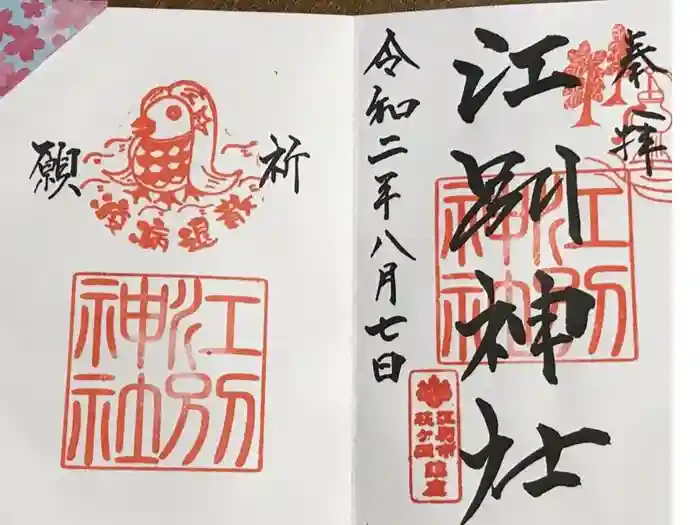 奉拝
江別神社
江別神社
令和二年八月七日
江別市
萩ヶ岡
鎮座
祈願
疫病退散
江別神社